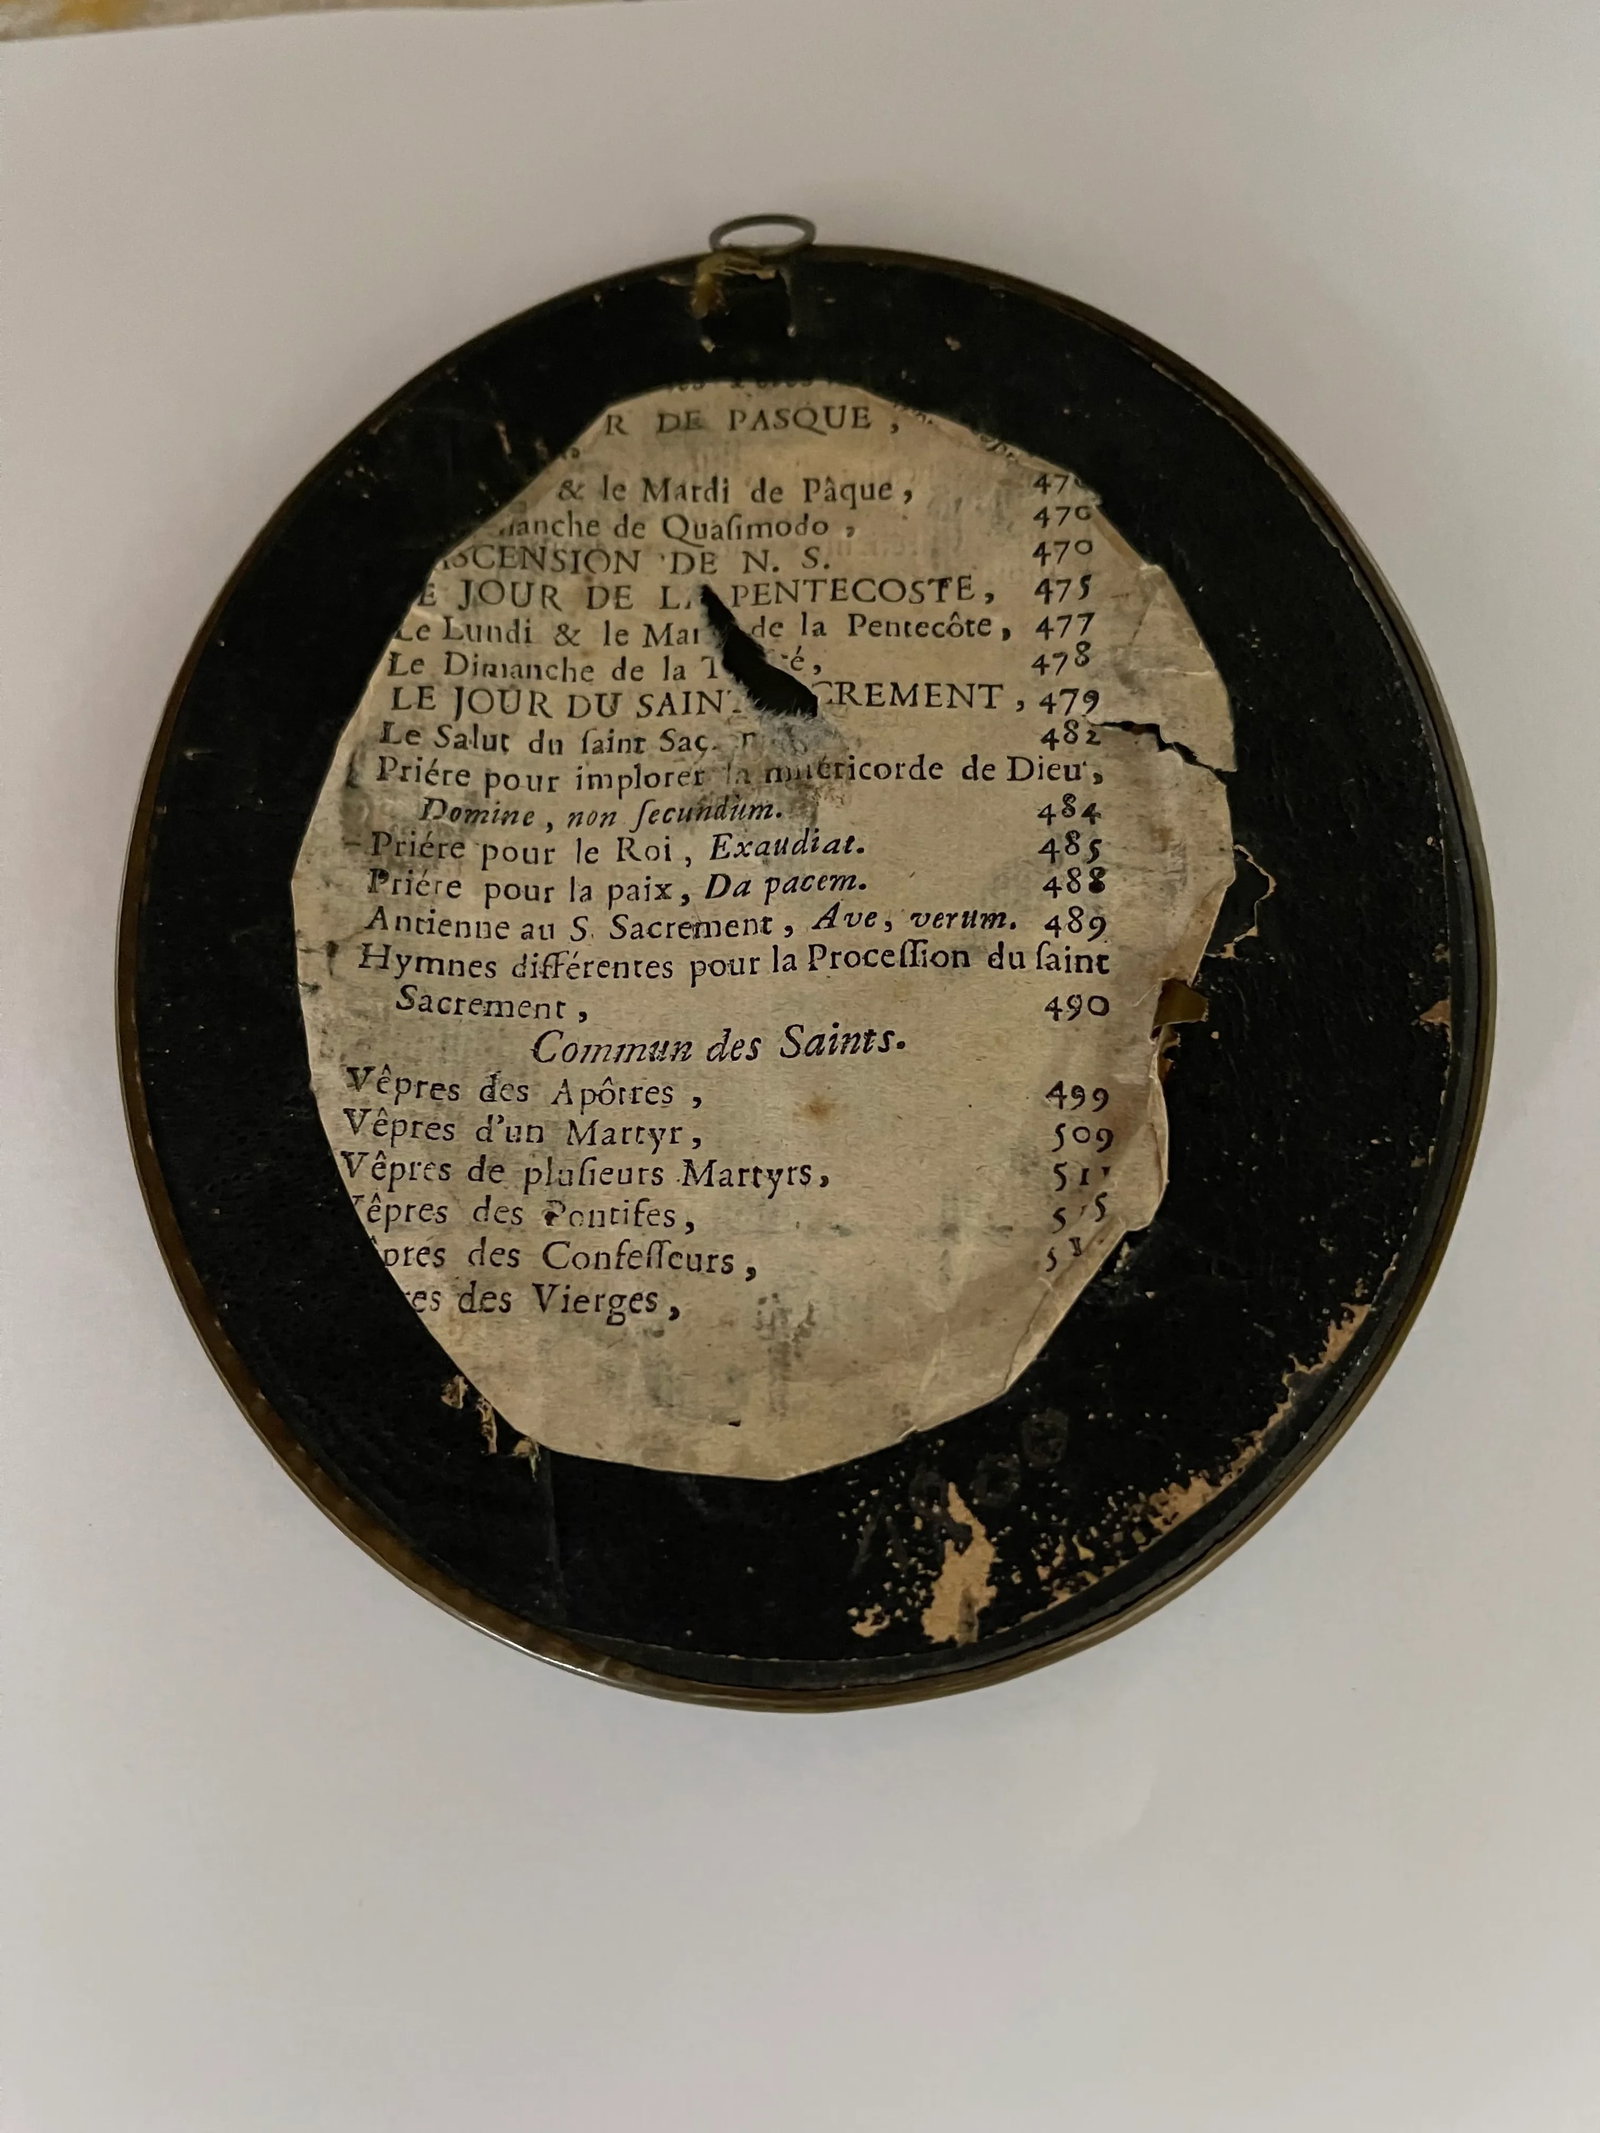 R DE PASQUE,
& le Mardi de Pâque, 470
manche de Quaſimodo, 470
SCENSION DE N. S. 470
E JOUR DE LA PENTECOSTE, 475
Le Lundi & le Mar de la Pentecôte, 477
Le Dimanche de la T é, 478
LE JOUR DU SAINT CREMENT, 479
Le Salut du ſaint Sac 482
Priére pour implorer la miſéricorde de Dieu,
Domine, non ſecundùm. 484
Priére pour le Roi, Exaudiat. 485
Priére pour la paix, Da pacem. 488
Antienne au S. Sacrement, Ave, verum. 489
Hymnes différentes pour la Proceſſion du ſaint
Sacrement, 490
Commun des Saints.
Vêpres des Apôtres, 499
Vêpres d'un Martyr, 509
Vêpres de pluſieurs Martyrs, 51
Vêpres des Pontifes, 5 5
êpres des Confeſſeurs, 5
res des Vierges,